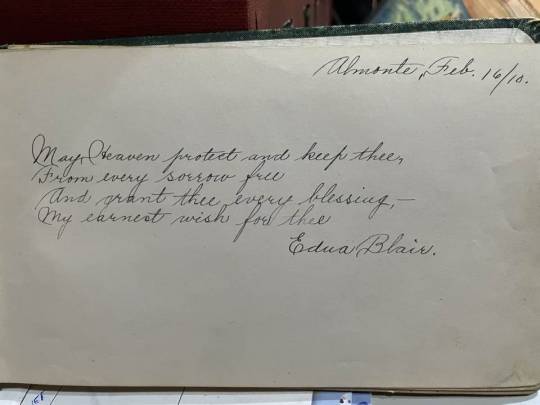 Almonte, Feb. 16/10.
May Heaven protect and keep thee,
From every sorrow free
And grant thee, every blessing,—
My earnest wish for thee
Edna Blair.